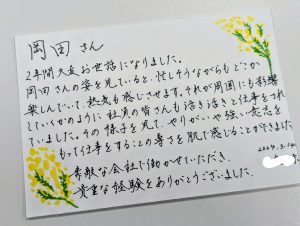 岡田さん
2年間大変お世話になりました。
岡田さんの姿を見ていると、忙しそうながらもどこか
楽しんでいて、熱気も感じさせます。それが周囲にも影響
していくかのように社員の皆さんも活き活きと仕事をされ
ていました。その様子を見て、やりがいや強い意志を
もって仕事をすることの尊さを肌で感じることができました
素敵な会社で働かせていただき、
貴重な経験をありがとうございました。
2024.3.14